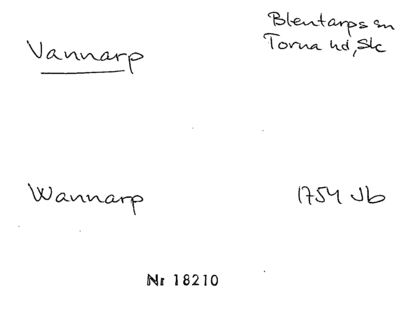 Vannarp
Blentarps sn
Torna hd, Sk
Wannarp
1754 Jb
Nr 18210